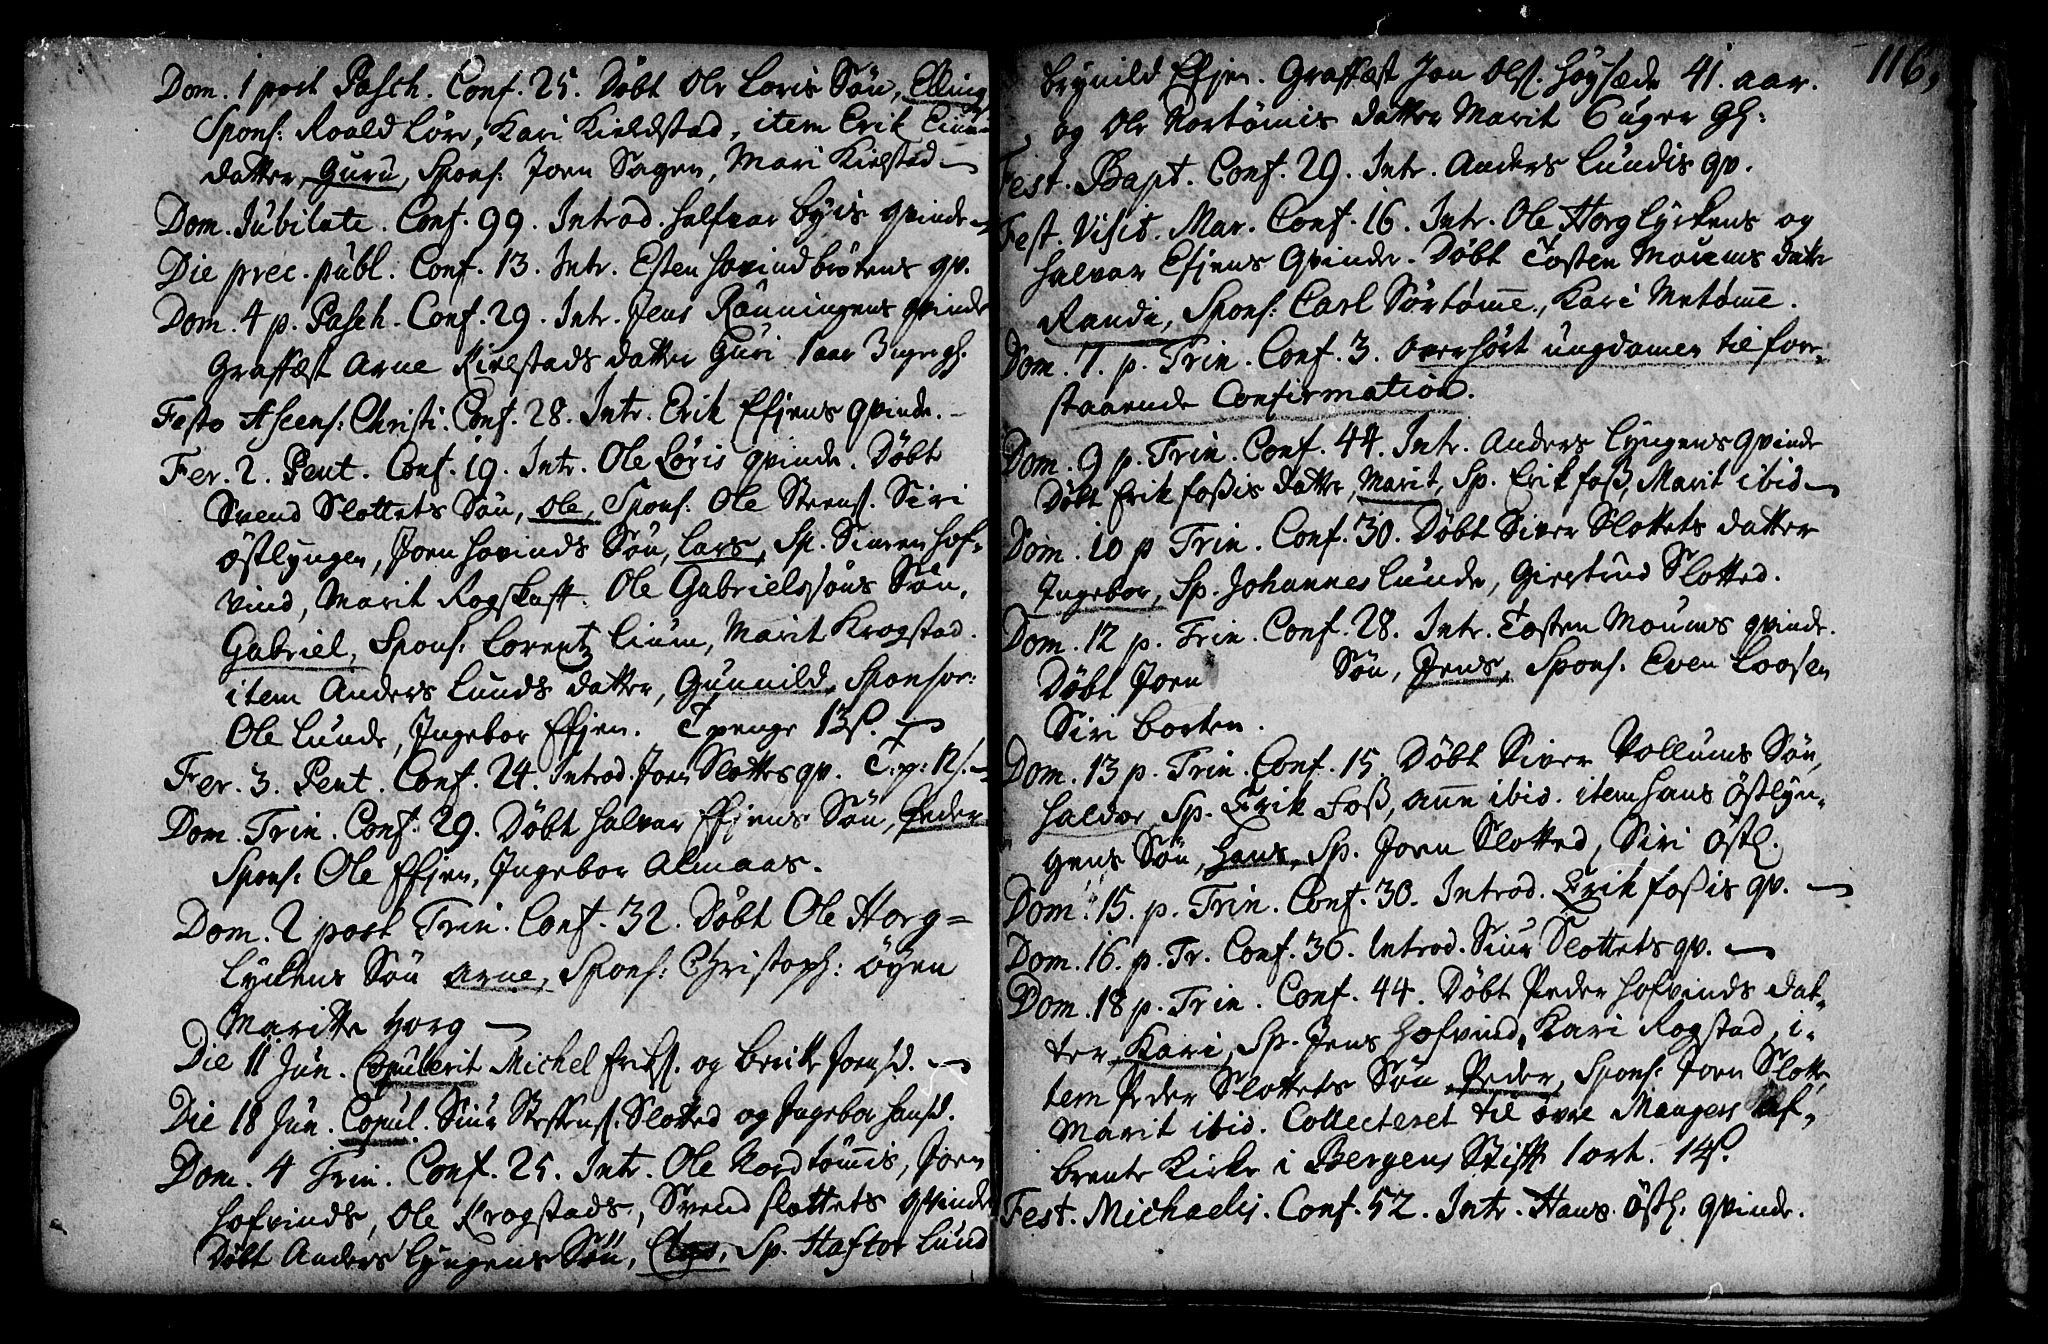 Dom. 1 post Pasch. Conf. 25. Døbt Ole Løris Søn, Elling
Spons: Roald Løre, Kari Kielstad, item Erik Lium
datter, Guru, Spons: Joen Sagen, Mari Kielstad
Dom. Jubilate. Conf. 99. Introd. Halfvar Byis qvinde
Die prec. publ. Conf. 13. Intr. Esten Hovindbrøtens qv.
Dom. 4 p. Pasch. Conf. 29. Intr. Jens Rønningens qvinde
Graffæst Arne Kielstads datter Guri 1 aar 3 uger gl.
Festo Ascens: Christi. Conf. 28. Intr. Erik Efjens qvinde.
Fer. 2. Pent. Conf. 19. Intr. Ole Løris qvinde. Døbt
Svend Slottets Søn, Ole, Spons: Ole Steens. Siri
Østlyngen, Joen Hovinds Søn, Lars, Sp. Simen Hof-
vind, Marit Rogstad. Ole Gabrielssøns Søn,
Gabriel, Spons: Lorentz Lium, Marit Krogstad.
item Anders Lunds datter, Gunnild, Sponsor:
Ole Lunde, Ingebor Efjen. T penge 13 s.
Fer. 3. Pent. Conf. 24. Introd. Joen Slottes qv. T. p: 12 s.
Dom. Trin. Conf. 29. Døbt Halvar Efjens Søn, Peder
Spons: Ole Efjen, Ingebor Almaas.
Dom. 2 post Trin. Conf. 32. Døbt Ole Horg=
Lyckens Søn Arne, Spons: Christoph: Øyen
Maritte Horg
Die 11 Jun. Copulerit Michel Eriks. og Beritte Joensd.
Die 18 Jun. Copul. Siur Steffens. Slotted og Ingebor Hansd.
Dom. 4 Trin. Conf. 25. Intr. Ole Nordtømis, Joen
Hofvinds, Ole Krogstads, Svend Slottets qvinde
Døbt Anders Lyngens Søn, Sp. Haftor Lund
116.
Brynild Efjen. Graffæst Jon Ols. Høysæde 41. aar.
og Ole Nortømis datter Marit 6 uger gl:
Fest. Bapt. Conf. 29. Intr. Anders Lundis qv.
Fest. Visit. Mar. Conf. 16. Intr. Ole Horglyckens og
Halvar Efjens Qvinde. Døbt Tosten Moums datter
Randi, Spons: Carl Sørtømme, Kari Metømme.
Dom. 7. p. Trin. Conf. 3. Overhørt ungdomen til fore-
staaende Confirmation.
Dom. 9 p. Trin. Conf. 44. Intr. Anders Lyngens Qvinde
Døbt Erik Fossis datter, Marit, Sp. Erik Foss, Marit ibid
Dom. 10 p Trin. Conf. 30. Døbt Siver Slottets datter
Ingebor, Sp. Johannes Lunde, Giertrud Slotted.
Dom. 12 p. Trin. Conf. 28. Intr. Tosten Moums qvinde.
Døbt Joen Søn, Jens, Spons: Even Loosen
Siri Borten.
Dom. 13 p. Trin. Conf. 15. Døbt Siver Vollums Søn,
Haldor, Sp. Erik Foss, Anne ibid. item Hans Østlyn-
gens Søn, Hans, Sp. Joen Slotted, Siri Østl.
Dom. 15. p. Trin. Conf. 30. Introd. Erik Fossis qv.
Dom. 16. p. Tr. Conf. 36. Introd. Siur Slottets qv.
Dom. 18 p. Trin. Conf. 44. Døbt Peder Hofvinds dat-
ter Kari, Sp. Jens Hofvind, Kari Rogstad, i-
tem Peder Slottets Søn, Peder, Spons: Joen Slotte,
Marit ibid. Collecteret til Øvre Mangers af-
brente Kirke i Bergens Stift 1 ort. 14 s.
Fest. Michaelis. Conf. 52. Intr. Hans Østl. qvinde.